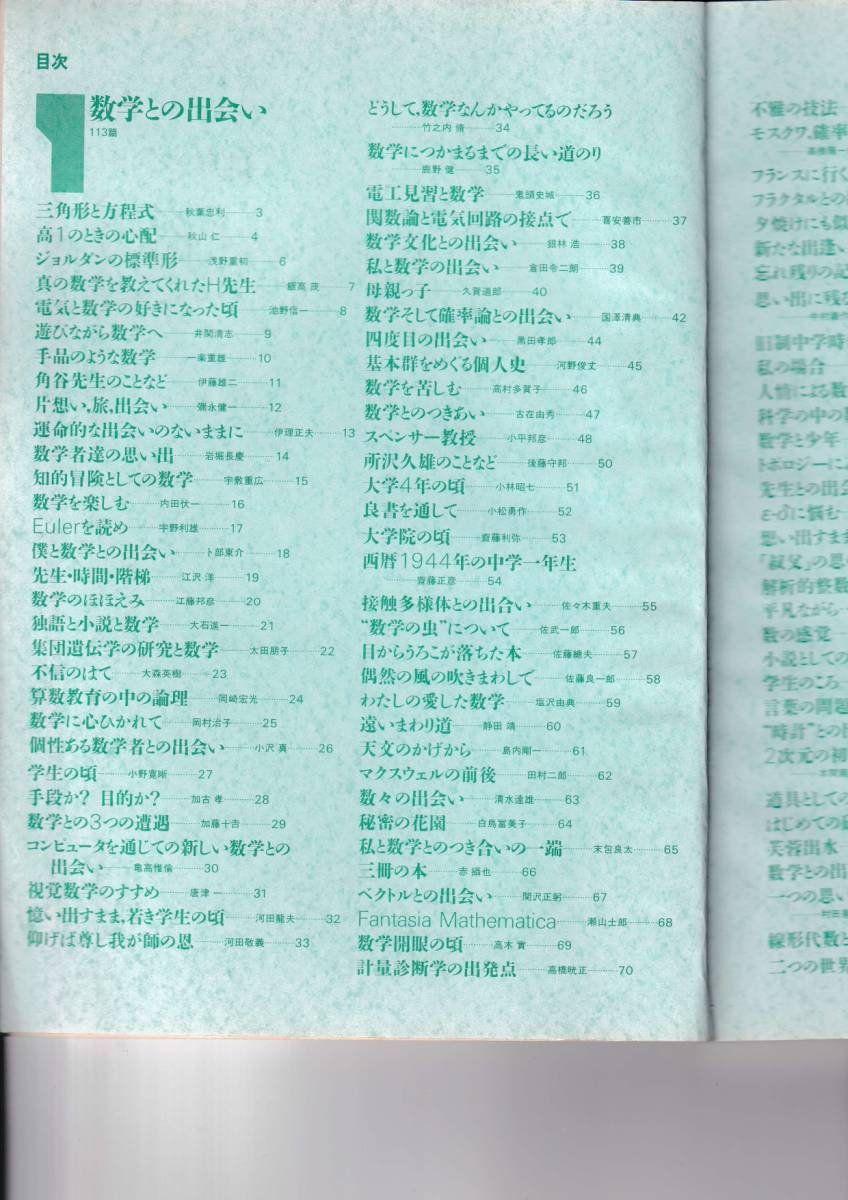 目次
1
数学との出会い
113篇
三角形と方程式………秋葉忠利………3
高1のときの心配………秋山 仁………4
ジョルダンの標準形………浅野重初………6
真の数学を教えてくれたH先生………飯高 茂………7
電気と数学の好きになった頃………池野信一………8
遊びながら数学へ………井関清志………9
手品のような数学………一楽重雄………10
角谷先生のことなど………伊藤雄二………11
片想い,旅,出会い………彌永健一………12
運命的な出会いのないままに………伊理正夫………13
数学者達の思い出………岩堀長慶………14
知的冒険としての数学………宇敷重広………15
数学を楽しむ………内田伏一………16
Eulerを読め………宇野利雄………17
僕と数学との出会い………卜部東介………18
先生・時間・階梯………江沢 洋………19
数学のほほえみ………江藤邦彦………20
独語と小説と数学………大石進一………21
集団遺伝学の研究と数学………太田朋子………22
不信のはて………大森英樹………23
算数教育の中の論理………岡崎宏光………24
数学に心ひかれて………岡村治子………25
個性ある数学者との出会い………小沢 真………26
学生の頃………小野寛晰………27
手段か? 目的か?………加古 孝………28
数学との3つの遭遇………加藤十吉………29
コンピュータを通じての新しい数学との
出会い………亀高惟倫………30
視覚数学のすすめ………唐津 一………31
憶い出すまま,若き学生の頃………河田龍夫………32
仰げば尊し我が師の恩………河田敬義………33
どうして,数学なんかやってるのだろう
………竹之内 脩………34
数学につかまるまでの長い道のり
………鹿野 健………35
電工見習と数学………鬼頭史城………36
関数論と電気回路の接点で………喜安善市………37
数学文化との出会い………銀林 浩………38
私と数学の出会い………倉田令二朗………39
母親っ子………久賀道郎………40
数学そして確率論との出会い………国澤清典………42
四度目の出会い………黒田孝郎………44
基本群をめぐる個人史………河野俊丈………45
数学を苦しむ………高村多賀子………46
数学とのつきあい………古在由秀………47
スペンサー教授………小平邦彦………48
所沢久雄のことなど………後藤守邦………50
大学4年の頃………小林昭七………51
良書を通して………小松勇作………52
大学院の頃………齋藤利弥………53
西暦1944年の中学一年生
………齋藤正彦………54
接触多様体との出合い………佐々木重夫………55
“数学の虫”について………佐武一郎………56
目からうろこが落ちた本………佐藤總夫………57
偶然の風の吹きまわして………佐藤良一郎………58
わたしの愛した数学………塩沢由典………59
遠いまわり道………静田 靖………60
天文のかげから………島内剛一………61
マクスウェルの前後………田村二郎………62
数々の出会い………清水達雄………63
秘密の花園………白鳥富美子………64
私と数学とのつき合いの一端………末包良太………65
三冊の本………赤 攝也………66
ベクトルとの出会い………関沢正躬………67
Fantasia Mathematica………瀬山士郎………68
数学開眼の頃………高木 實………69
計量診断学の出発点………高橋晄正………70
不雅の技法
モスクワ,確率
フランスに行く
フラクタルとの
夕焼けにも似
新たな出逢い
忘れ残りの記
思い出に残る
旧制中学時
私の場合
人情による数
科学の中の
数学と少年
トポロジーに
先生との出会
ε-δに悩む
想い出すまま
「叔父」の思
解析的整数
平凡ながら
数の感覚
小説としての
学生のころ
言葉の問題
“時計”との
2次元の初
道具としての
はじめての
芙蓉出水
数学との出
一つの思い
線形代数と
二つの世界